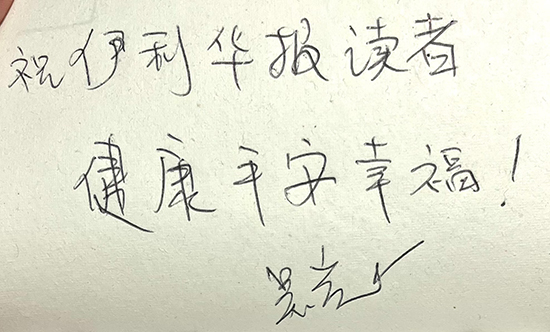 祝伊利华报读者
健康平安幸福！